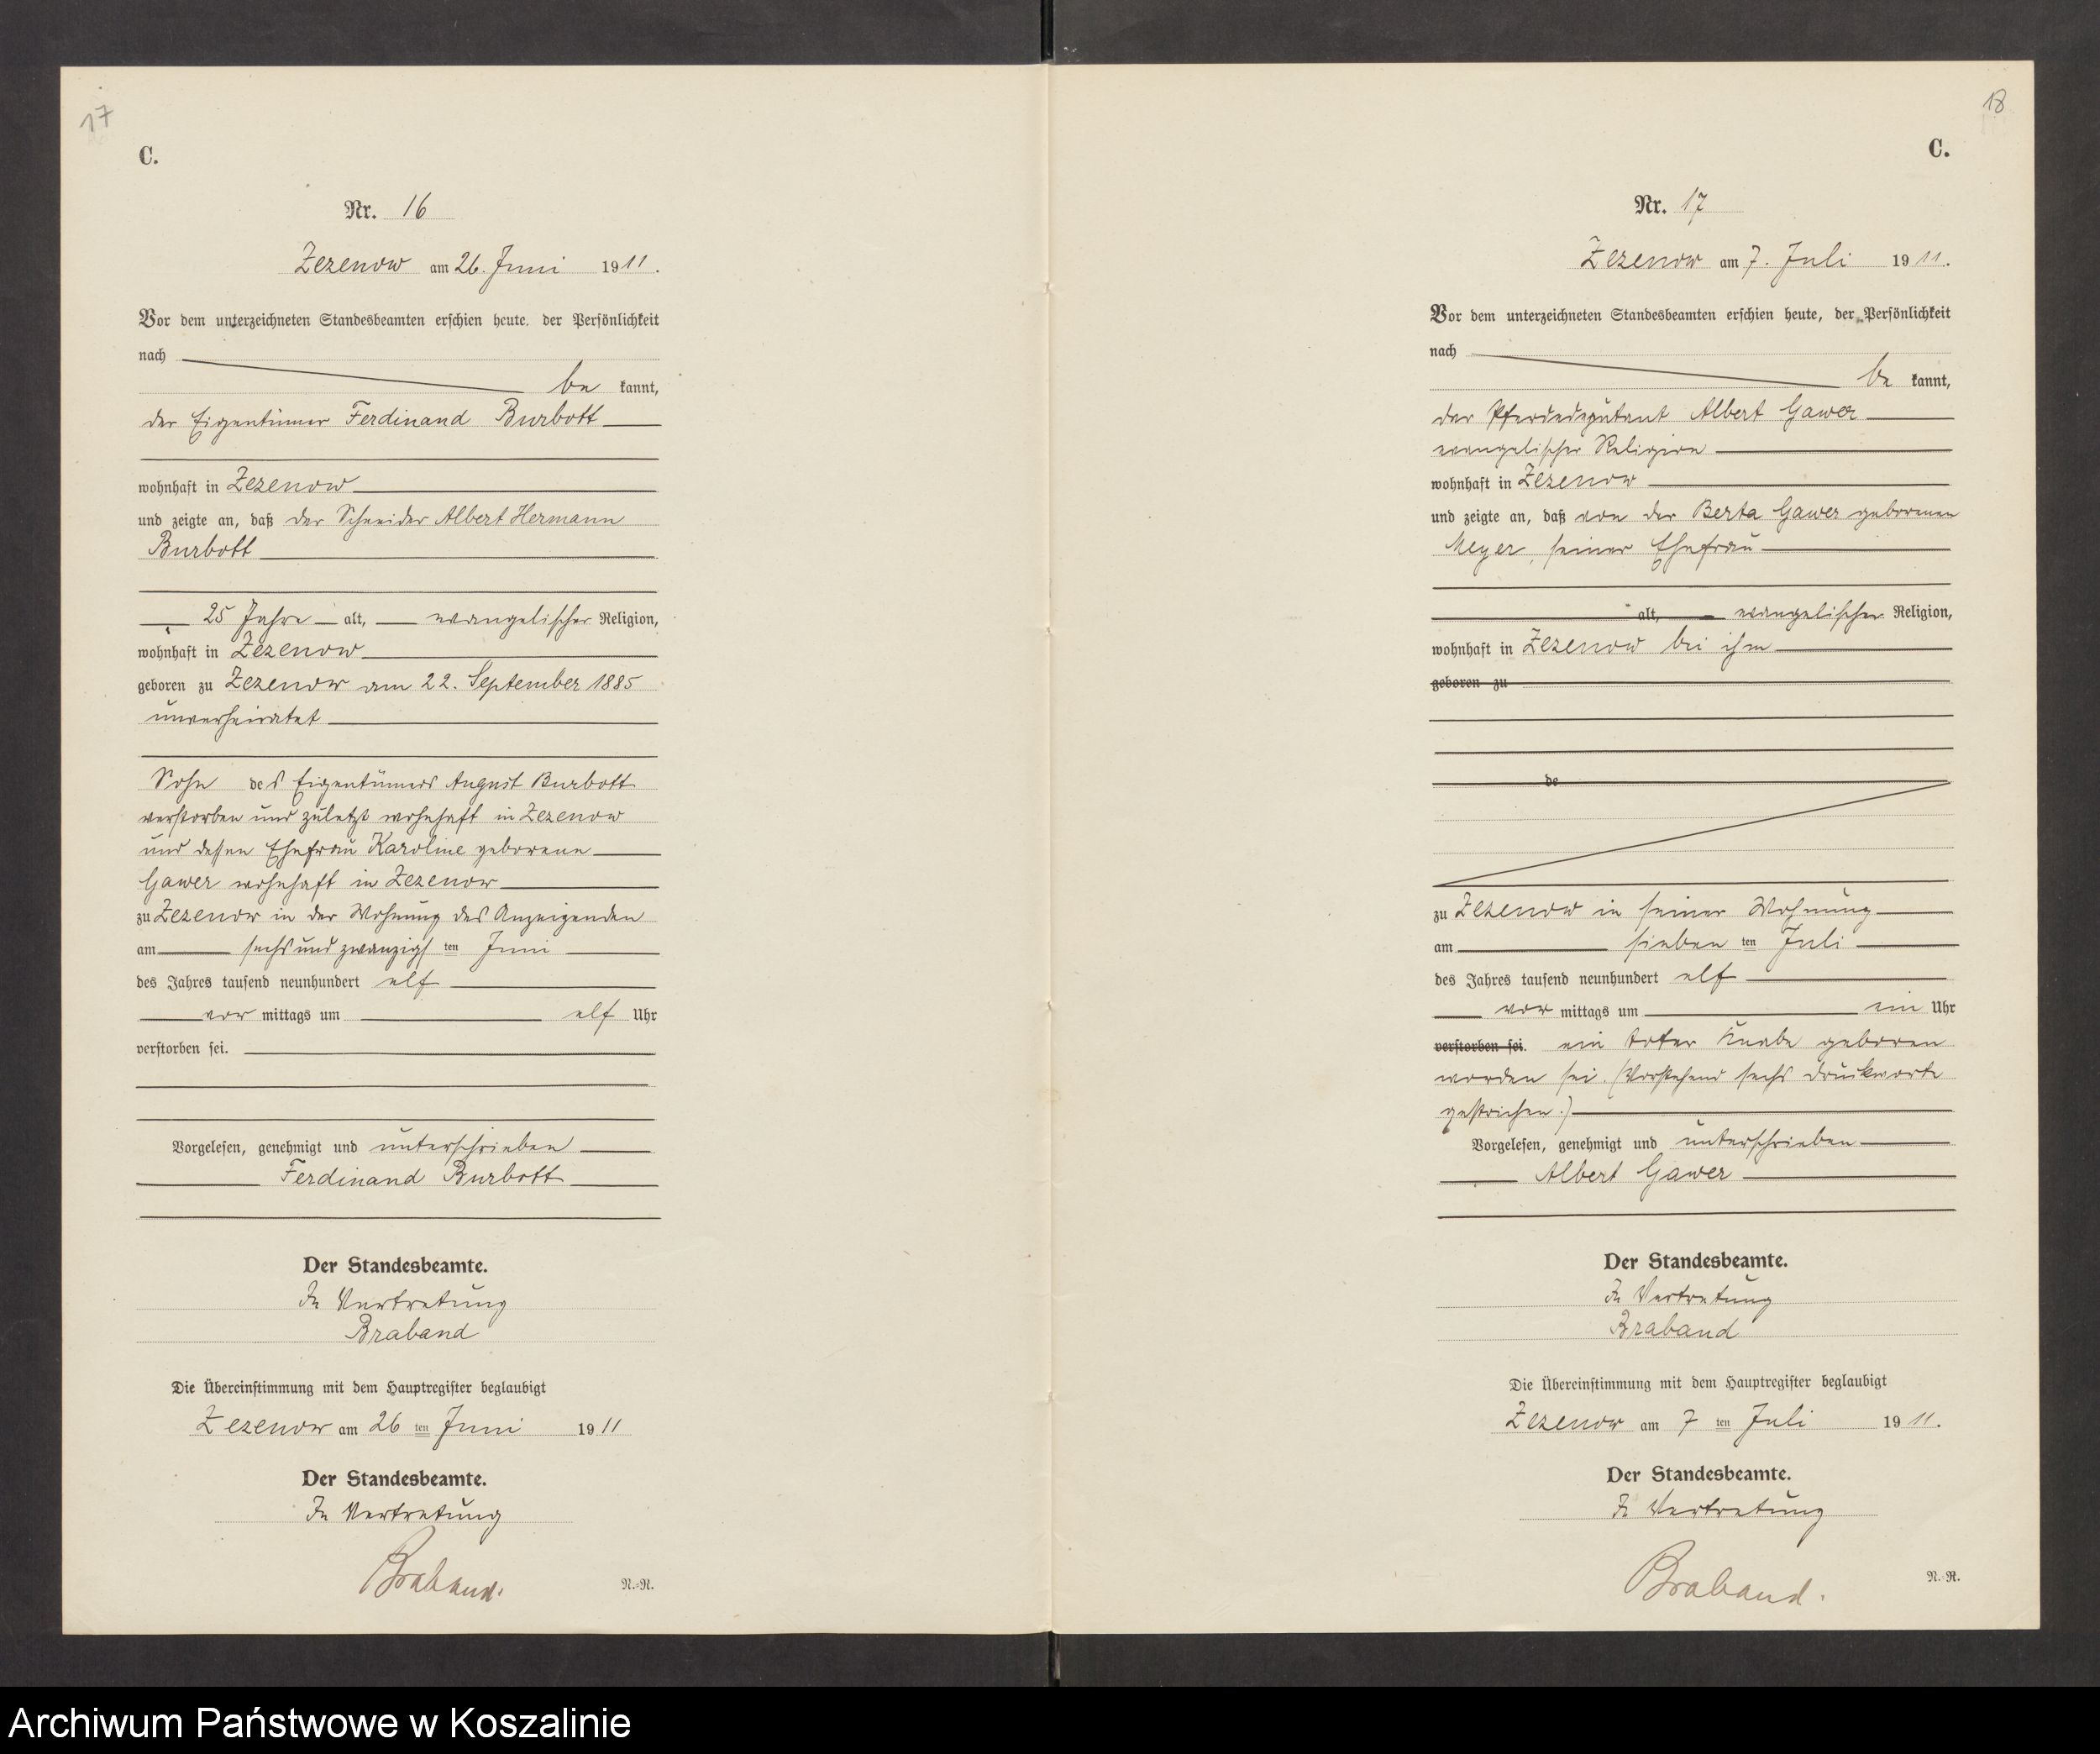 17
C.
Nr. 16
Zezenow am 26. Juni 1911.
Vor dem unterzeichneten Standesbeamten erschien heute, der Persönlichkeit
nach
be kannt,
der Eigentümer Ferdinand Burbott
wohnhaft in Zezenow
und zeigte an, daß der Schneider Albert Hermann
Burbott
25 Jahre alt, evangelischer Religion,
wohnhaft in Zezenow
geboren zu Zezenow am 22. September 1885
unverheiratet
Sohn des Eigentümers August Burbott
verstorben und zuletzt wohnhaft in Zezenow
und dessen Ehefrau Karoline geborene
Gawer wohnhaft in Zezenow
zu Zezenow in der Wohnung des Anzeigenden
am sechsundzwanzigsten Juni
des Jahres tausend neunhundert elf
vor mittags um elf Uhr
verstorben sei.
Vorgelesen, genehmigt und unterschrieben
Ferdinand Burbott
Der Standesbeamte.
In Vertretung
Braband
Die Übereinstimmung mit dem Hauptregister beglaubigt
Zezenow am 26 ten Juni 1911
Der Standesbeamte.
In Vertretung
Braband.
N.=R.
18
C.
Nr. 17
Zezenow am 7. Juli 1911.
Vor dem unterzeichneten Standesbeamten erschien heute, der Persönlichkeit
nach
be kannt,
der Albert Gawer
evangelischer Religion
wohnhaft in Zezenow
und zeigte an, daß von der Berta Gawer geborenen
Meyer, seiner Ehefrau
alt, evangelischer Religion,
wohnhaft in Zezenow bei ihm
geboren zu
de
zu Zezenow in seiner Wohnung
am sieben ten Juli
des Jahres tausend neunhundert elf
vor mittags um ein Uhr
verstorben sei. ein toter Knabe geboren
worden sei. (Vorstehend sechs Druckworte
gestrichen.)
Vorgelesen, genehmigt und unterschrieben
Albert Gawer
Der Standesbeamte.
In Vertretung
Braband
Die Übereinstimmung mit dem Hauptregister beglaubigt
Zezenow am 7 ten Juli 1911.
Der Standesbeamte.
In Vertretung
Braband.
N.=R.
Archiwum Państwowe w Koszalinie